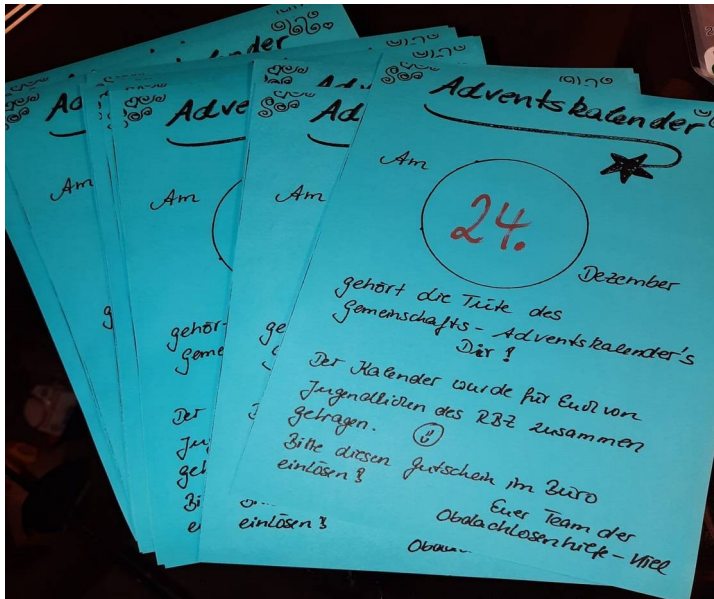 kalender
Ad
Am
Adve
Am
gehör
Geme
Der
Ad
Am
ge
einlösen !
Adventskalender
Am
24.
Dezember
gehört die Tüte des
Gemeinschafts-Adventskalender's
Dir !
Der Kalender wurde für Euch von
Jugendlichen des RBZ zusammen
getragen.
Bitte diesen Gutschein im Büro
einlösen !
Euer Team der
Obdachlosenhilfe-Kiel